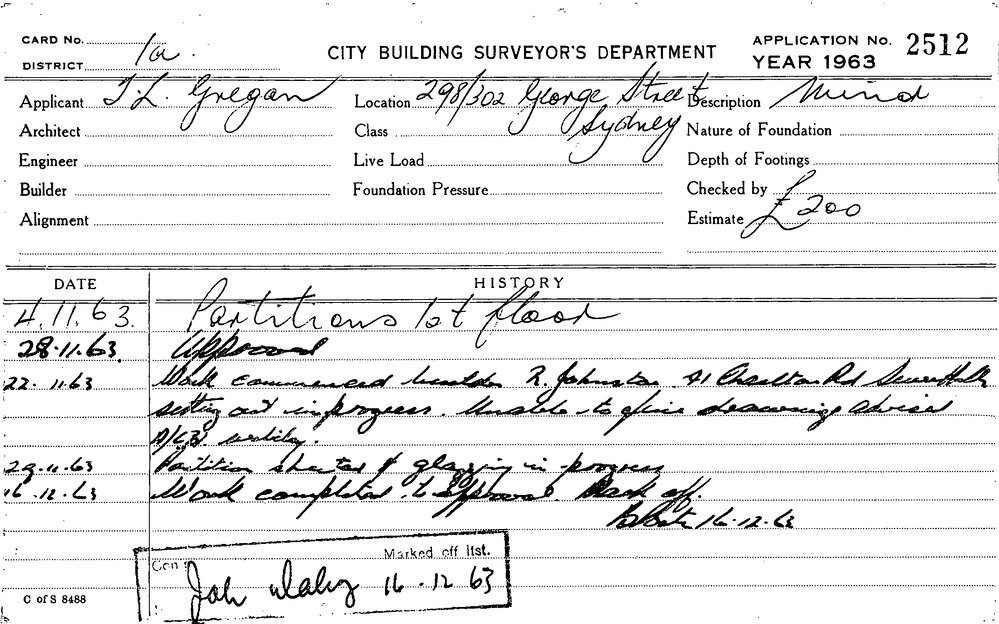 CARD No.
DISTRICT 1a.
CITY BUILDING SURVEYOR'S DEPARTMENT
APPLICATION No. 2512
YEAR 1963
Applicant T.L. Gregan
Location 298/302 George Street Sydney
Description Minor
Architect
Class
Nature of Foundation
Engineer
Live Load
Depth of Footings
Builder
Foundation Pressure
Checked by
Alignment
Estimate £200
DATE HISTORY
4.11.63. Partitions 1st floor
28.11.63. Approved
22.11.63 Work commenced builder R. Johnston. 41 Rd Seven Hills
setting out in progress. Unable to
29.11.63 Partition sheeted & glazing in progress
16.12.63 Work completed to approval. Mark off.
16.12.63
Marked off list.
Con
16.12.63
C of S 8488